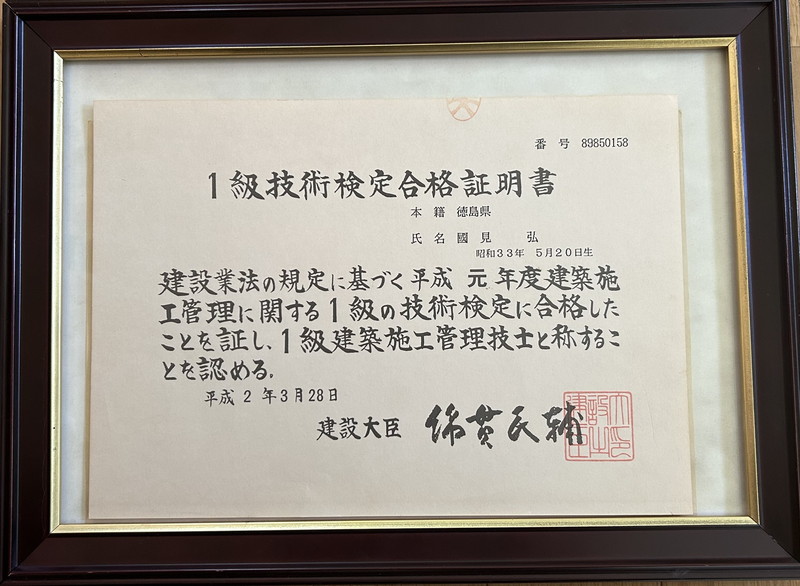 番 号 89850158
1級技術検定合格証明書
本 籍 徳島県
氏 名 國 見 弘
昭和33年 5月20日生
建設業法の規定に基づく平成 元 年度建築施
工管理に関する1級の技術検定に合格した
ことを証し、1級建築施工管理技士と称するこ
とを認める。
平成 2 年3月28日
建設大臣 綿貫民輔